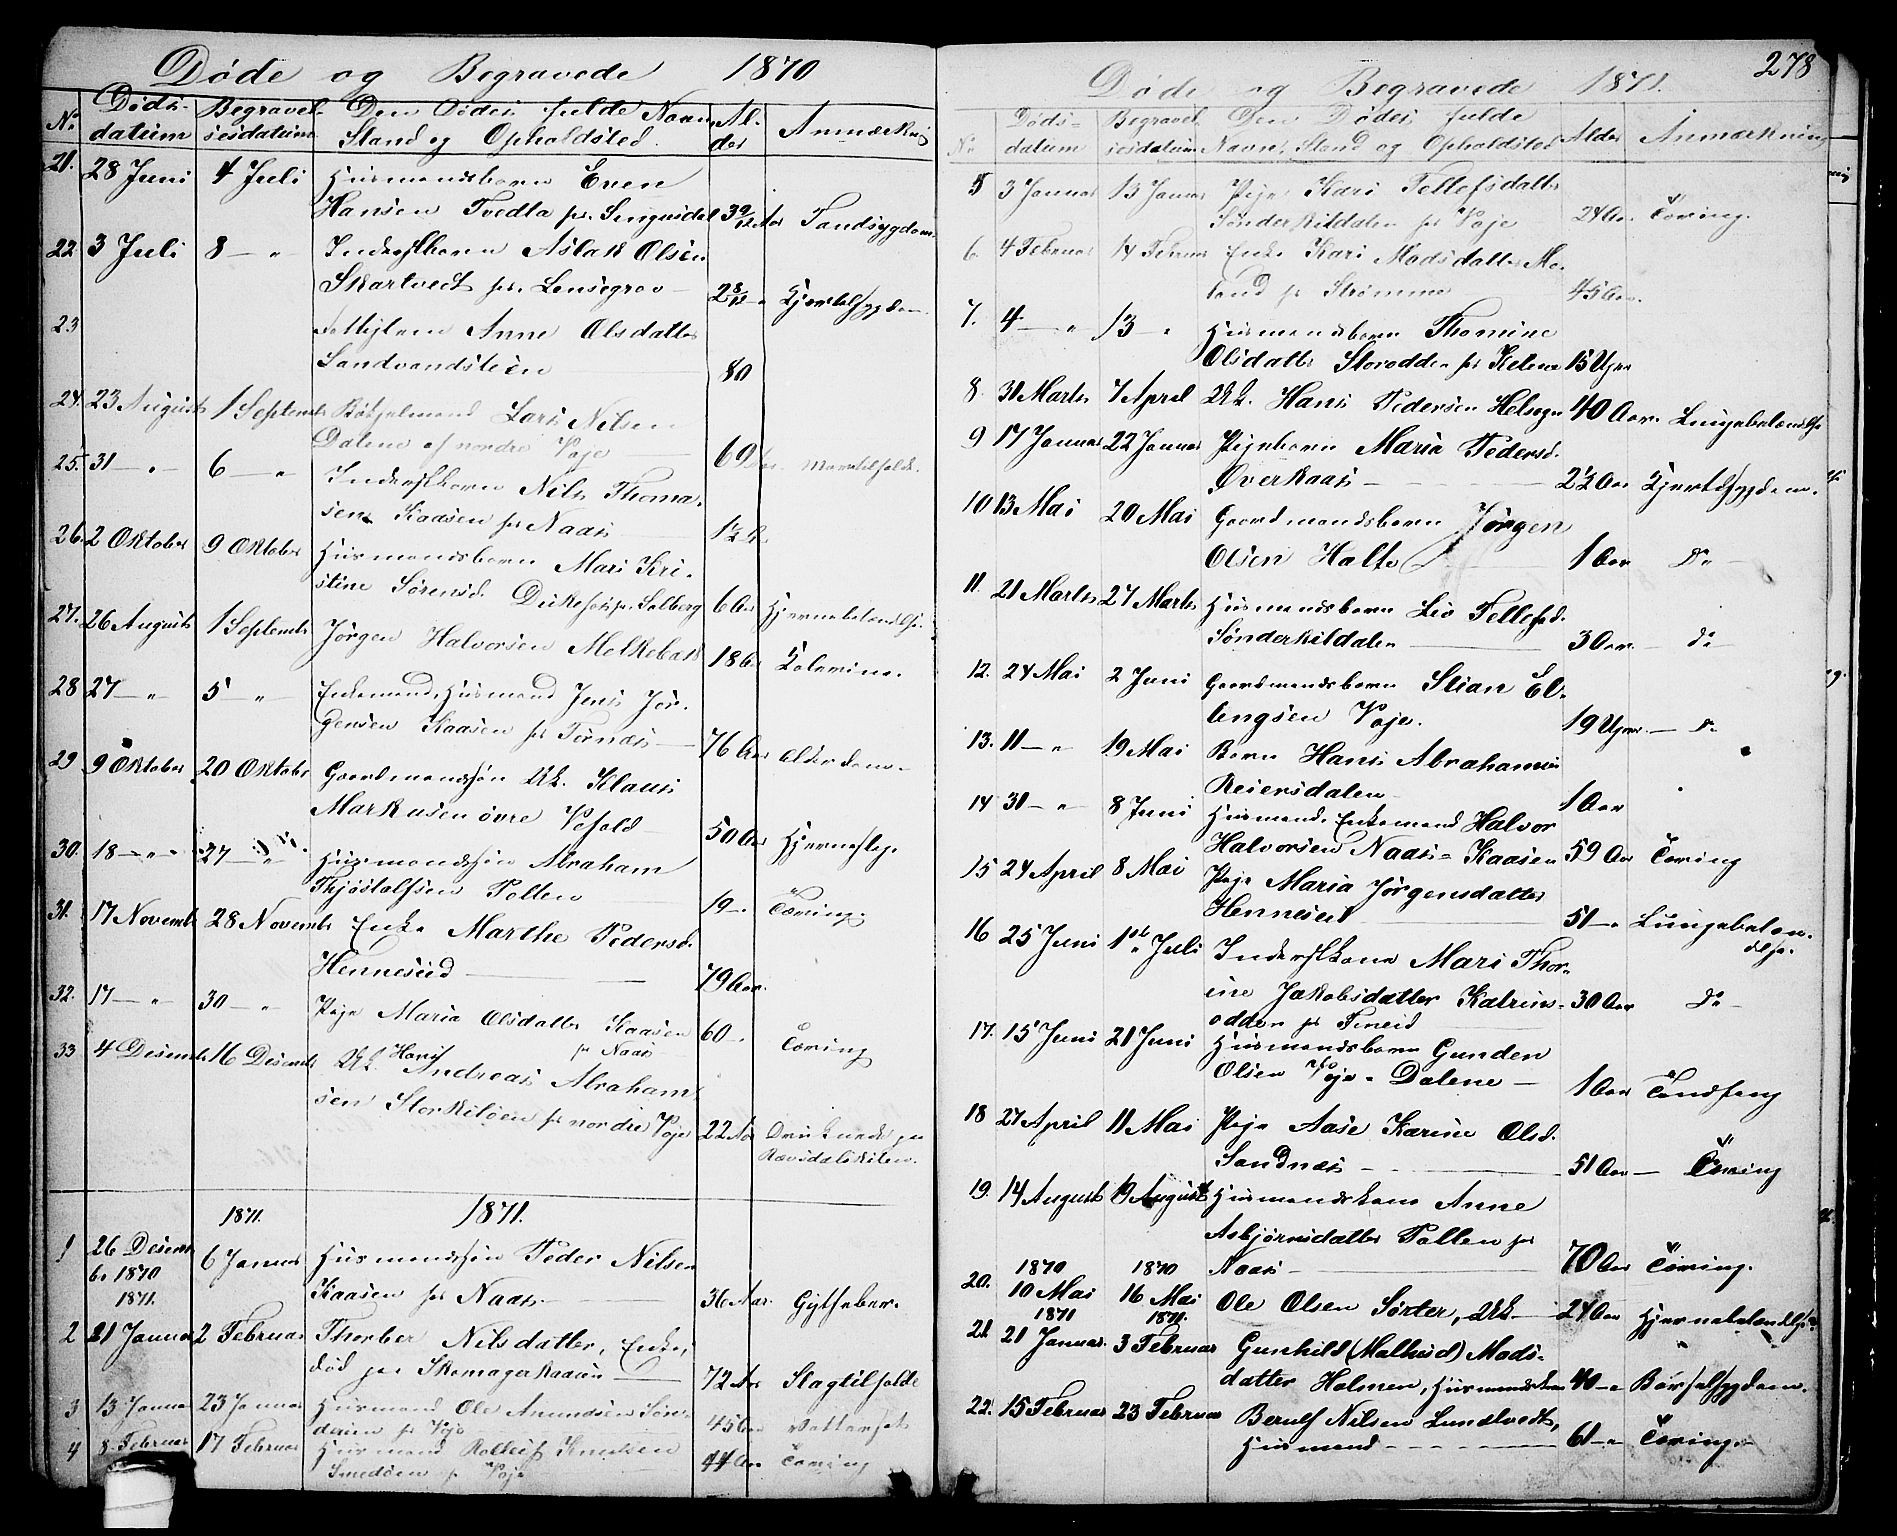 Døde og Begravede 1870
No Døds- datum Begravel- sesdatum Den Dødes fulde Navn Stand og Opholdsted. Al- der Anmærkning
21. 28 Juni 4 Juli Husmandsbarn Even
Hansen Tvedta 3 9/12 Aar Tandsygdom
22 3 Juli 8 – " Inderstbarn Aslak Olsen
Skartvedt 2 8/12 – " Hjertesygdom
23 Anne Olsdatter
Sandvandsteen 80
24. 23 August 1 September Lars Nilsen
Dalene af nordre Voje 69 Aar
25. 31 – " 6 – " Inderstbarn Nils Thoma-
sen Kaasen pr Naas 1½ A.
26. 2 Oktober 9 Oktober Husmandsbarn Mari Kri-
stine Sørensd. Solberg 6 Aar Hjernebetændelse.
27. 26 August 1 September Jørgen Halvorsen Melkebæk 18 Aar Kolerine.
28 27 – " 5 " Enkemand, Husmand Jens Jør-
gensen Kaasen pr Tørnæs 76 Aar Alderdom
29 9 Oktober 20 Oktober Gaardmandssøn Uk. Klaus
Markusen øvre Vefald 50 Aar Hjerneslag
30. 18 – " – 27 – " Husmandssøn Abraham
Thjøstolfsen Pollen 19 – Tæring.
31. 17 Novemb 28 Novemb Enke Marthe Pedersd.
Henneseid 79 Aar.
32. 17 – " 30 – " Pige Maria Olsdatter Kaasen
pr Naas 60 – Tæring
33 4 Desemb 16 Desemb Uk. Hans Andreas Abraham-
sen Storkiløen pr nordre Voje 22 Aar Druknede paa
1871. 1871.
1 26 Desem-
br 1870 6 Januar Husmandssøn Peder Nilsen
1871. Kaasen pr Naas 36 Aar. Gigtfeber.
2 21 Januar 2 Februar Thorber Nilsdatter, Enke,
død paa Skomagerkaasen 72 Aar Slagtilfælde
3 13 Janua 23 Januar Husmand Ole Amundsen Søn-
pr Voje 45 Aar Vattersot
4 8 Februar 17 Februar Husmand Knutsen
pr Voje 44 Aar Tæring
278
Døde og Begravede 1871.
No Døds- datum Begravel- sesdatum Den Dødes fulde Navn, Stand og Opholdsted Alder Anmærkning
5 3 Januar 13 Januar Pige Kari Tellefsdatter
Sønderkildalen pr Voje 24 Aar. Tæring.
6. 4 Februar 14 Februar Enke Kari Madsdatter Mo-
land pr Strømme 45 Aar.
7. 4 – " 13 – " Husmandsbarn Thomine
Olsdatter Storodden pr Kelene 15 Uger
8. 31 Marts 7 April Uk. Hans Pedersen Helsegn 40 Aar. Lungebetændelse
9 17 Januar 22 Januar Pigebarn Maria Pedersd.
Overkaas 2½ Aar Hjertesygdom.
10 13 Mai 20 Mai Gaardmandsbarn Jørgen
Olsen Halte 1 Aar Do
11. 21 Marts 27 Marts Husmandsbarn Liv Tellefsd.
Sønderkildalen 3 Aar. – do –
12. 24 Mai 2 Juni Gaardmandsbarn Stian El-
lengsen Voje. 19 Uger. – do
13. 11 – " 19 Mai Barn Hans Abrahamsen
Reiersdalen 1 Aar
14 31 – " 8 Juni Husmand. Enkemand Halvor
Halvorsen Naas = Kaasen 59 Aar Tæring
15 24 April 8 Mai Pige Maria Jørgensdatter
Henneseid 51 – " Lungebetæn-
delse.
16 25 Juni 1st Juli Inderstkone Mari Thor-
ine Jakobsdatter Katrine- 30 Aar Do –
odden pr Fineid
17. 15 Juni 21 Juni Husmandsbarn Gunden
Olsen Voje – Dalene – 1 Aar Tandfeng
18 27 April 11 Mai Pige Aase Karine Olsd.
Sandnæs 51 Aar – Tæring
19. 14 August 19 August Husmandskone Anne
Asbjørnsdatter Pollen pr
Naas 70 Aar Tæring.
1870 1870
20. 10 Mai 16 Mai Ole Olsen Sørter, Uk 24 Aar Hjernebetændelse
1871 1871.
21. 21 Januar. 3 Februar Gunhild (Malhild) Mads-
datter Holmen, Husmandskone 40 – " Barselsygdom.
22. 15 Februar 23 Februar Berulf Nilsen Lundtvedt,
Husmand 61 – " Tæring.